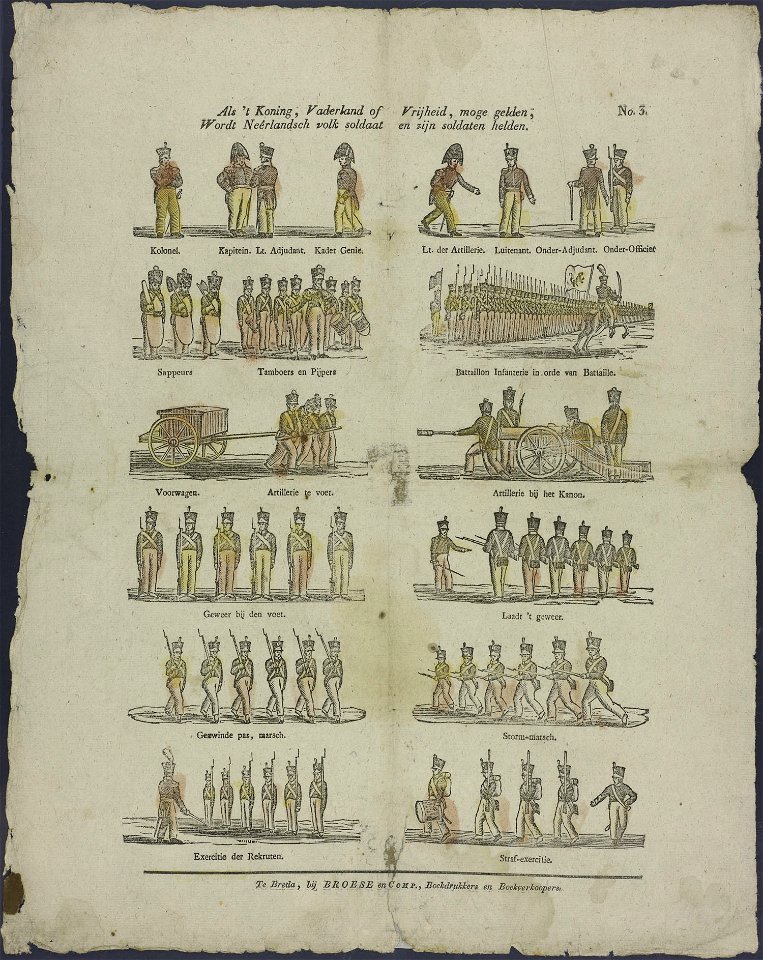 Als 't Koning, Vaderland of Vrijheid, moge gelden; No. 3.
Wordt Neêrlandsch volk soldaat en zijn soldaten helden.
Kolonel. Kapitein. Lt. Adjudant. Kader Genie. Lt. der Artillerie. Luitenant. Onder-Adjudant. Onder-Officier
Sappeurs Tamboers en Pijpers Battaillon Infanterie in orde van Battaille.
Voorwagen. Artillerie te voet. Artillerie bij het Kanon.
Geweer bij den voet. Laadt 't geweer.
Gezwinde pas, marsch. Storm-marsch.
Exercitie der Rekruten. Straf-exercitie.
Te Breda, bij BROESE en COMP., Boekdrukkers en Boekverkoopers.